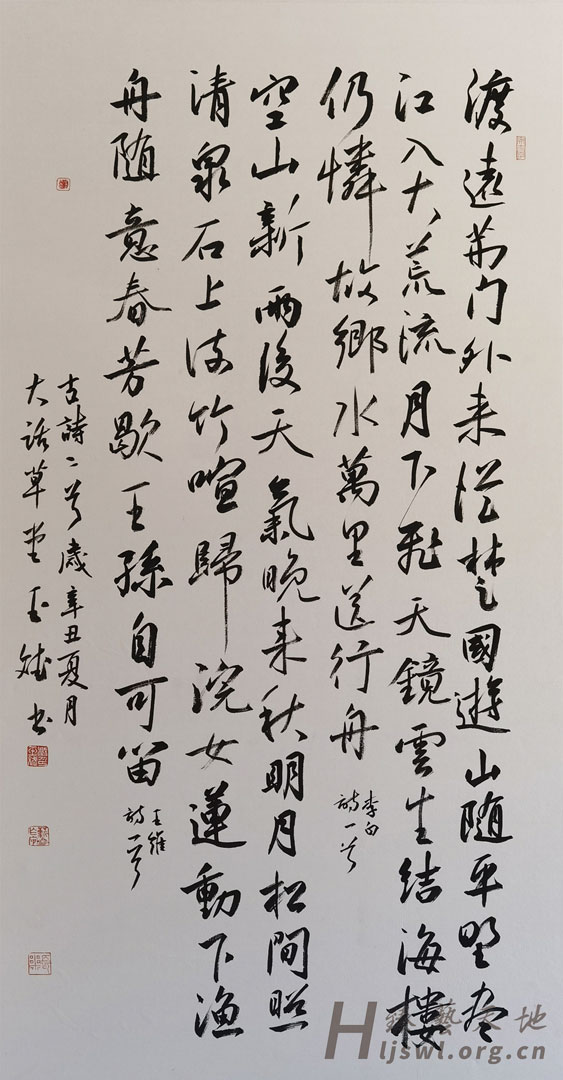 渡遠荆门外来從楚國遊山随平野盡
江入大荒流月下飛天鏡雲生结海樓
仍憐故鄉水萬里送行舟
李白
詩一首
空山新雨後天氣晚来秋明月松間照
清泉石上流竹喧歸浣女蓮動下渔
舟随意春芳歇王孫自可留
王維
詩一首
古詩二首歲辛丑夏月
大话草堂玉斌书
藝天地
Hljswl.org.cn